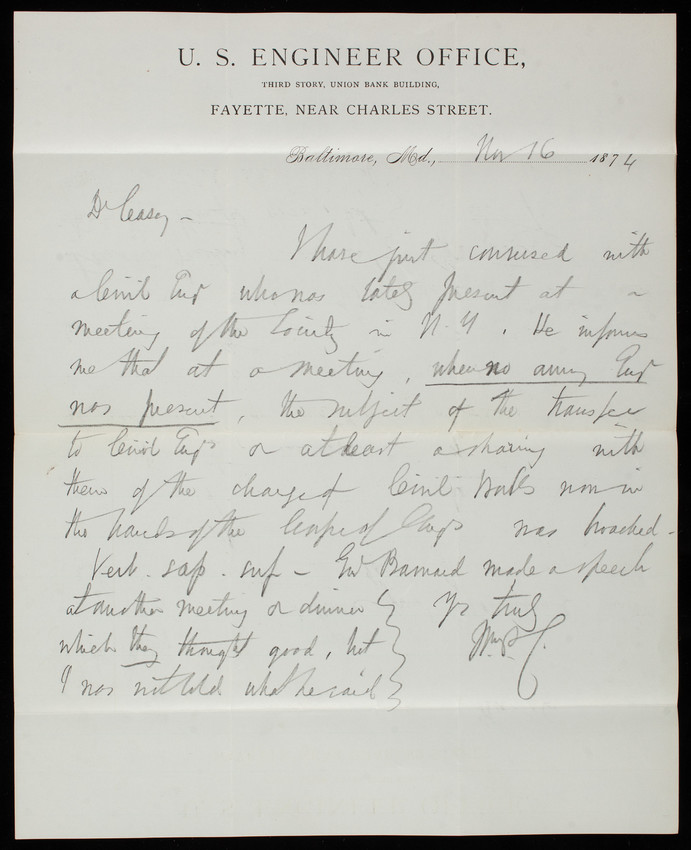 U. S. ENGINEER OFFICE,
THIRD STORY, UNION BANK BUILDING,
FAYETTE, NEAR CHARLES STREET.
Baltimore, Md., Nov 16 1874
Dr Casey –
I have just conversed with
a Civil Engr who was lately present at a
meeting of the Society in N.Y. He informs
me that at a meeting, when no army Engr
was present, the subject of the transfer
to Civil Engrs or at least a sharing with
them of the charge of Civil works now in
the hands of the Corps of Engrs was broached –
Verb. sap. suf – Genl Barnard made a speech
at another meeting or dinner
which they thought good, but
I was not told what he said
Yr truly
Wm P. C.